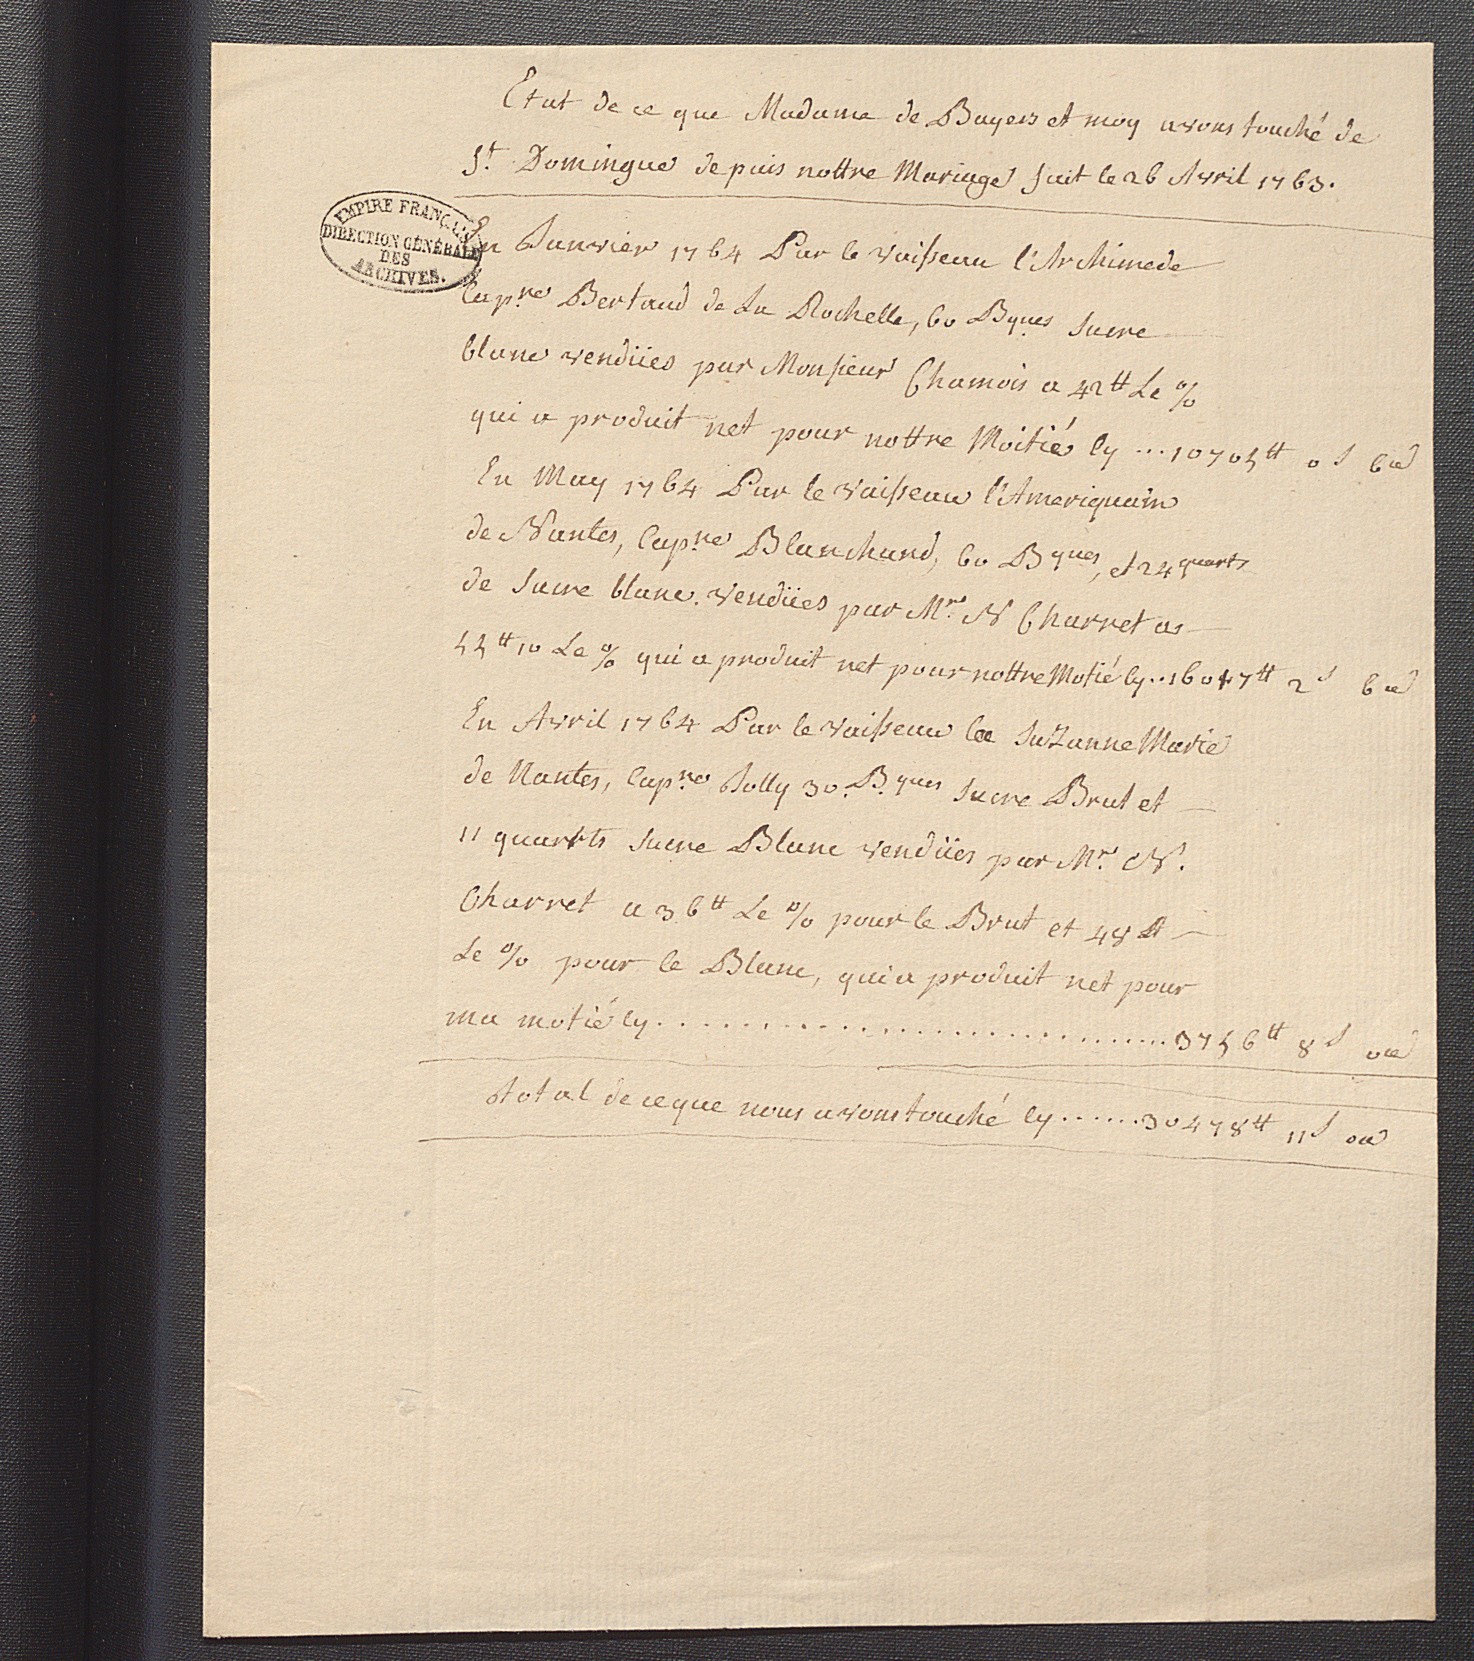 Etat de ce que Madame de Bayers et moy avons touché de
St. Domingue depuis nottre Mariage fait le 26 Avril 1763.
EMPIRE FRANÇAIS
DIRECTION GÉNÉRALE
DES
ARCHIVES.
En Janvier 1764 Par le vaisseau l'Archimede
Capne Bertaud de La Rochelle, 60 Bques sucre
blanc vendües par Monsieur Chamois a 42tt Le %
qui a produit net pour nottre Moitié cy ... 10705tt 0s 6d
En May 1764 Par le vaisseau l'Ameriquain
de Nantes, Capne Blanchard, 60 Bques, et 24 quarts
de sucre blanc. vendües par Mr. N Charret as
55tt 10 Le % qui a produit net pour nottre Motié cy .. 16017tt 2s 6d
En Avril 1764 Par le vaisseau la Suzanne Marie
de Nantes, Capne Jolly 30. Bques sucre Brut et
11 quarts sucre Blanc vendües par Mr. N.
Charret a 36tt Le % pour le Brut et 48tt
Le % pour le Blanc, qui a produit net pour
ma motié cy .............................. 3756tt 8s 0d
total de ce que nous avons touché cy ...... 30478tt 11s 0d